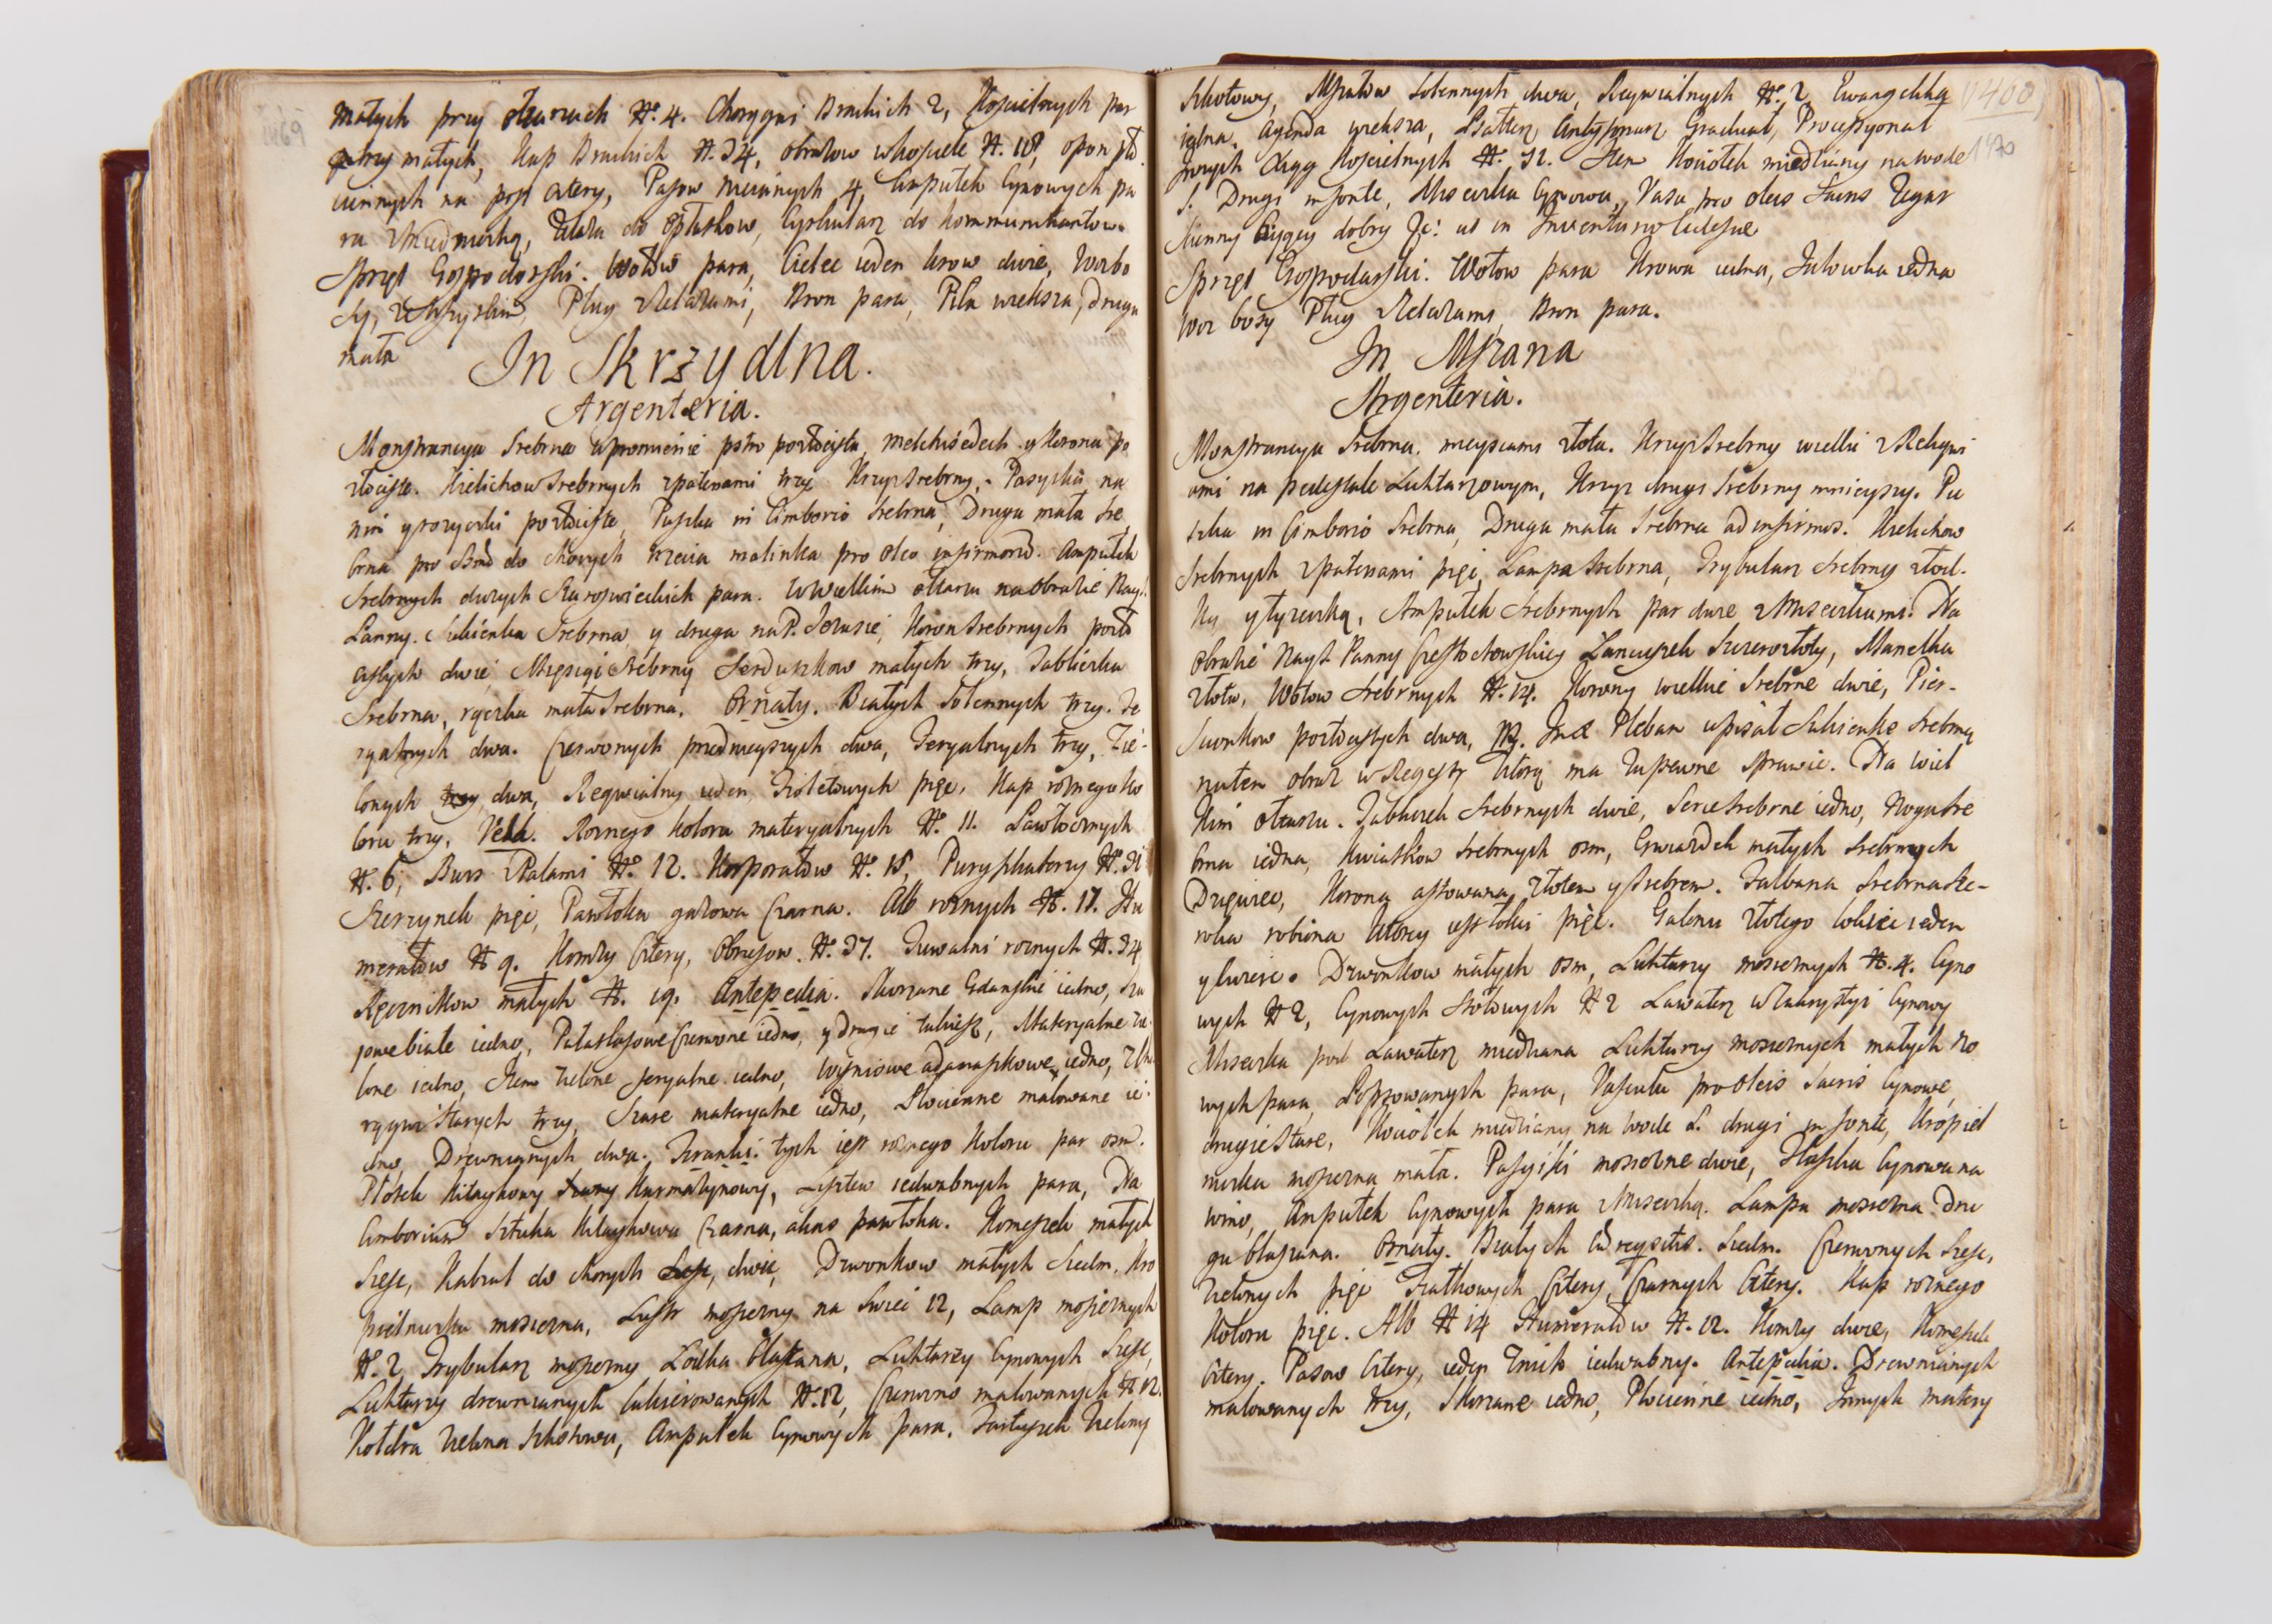 małych przy ołtarzach No. 4. Chorągwi Brackich 2, Kościelnych par
trzy małych, Kap Brackich N. 34, obrazow w kosciele N. 18, opon płó
ciennych na post cztery, Pasow nicianych 4 Ampułek Cynowych pa
ra z Miedniczką, Zelaza do opłatkow, Cyrkularz do kommunikantow.
Sprzęt Gospodarski. Wołow para, Cielec ieden krow dwie, Woz bo
sy, Pług z Zelazami, Bron para, Piła większa, Druga
mała
In Skrzydlna.
Argenteria.
Monstrancya Srebrna w promienie pstro pozłocista, Melchisedech y Korona po
złociste. Kielichow Srebrnych z patenami trzy Krzyz Srebrny, Passyika na
nim y rozyczki pozłociste, Puszka in Cimborio Srebrna, Druga mała Sre
brna pro do chorych trzecia malinka pro oleo infirmorum. Ampułek
Srebrnych duzych Staroswieckich para. W wielkim ołtarzu na obrazie Nays:
Panny. Sukienka Srebrna y druga na P. Jezusie, Koron Srebrnych pozło
cistych dwie, Miesiąc Srebrny Serduszkow małych trzy, Tabliczka
Srebrna, rączka mała Srebrna. Ornaty. Białych Solennych trzy. Fe
ryalnych dwa. Czerwonych przednieyszych dwa, Feryalnych trzy, Zie-
lonych trzy dwa, Requialny ieden, Fioletowych pięć. Kap roznego ko
loru trzy, Vela. Roznego koloru materyalnych No. 11. Pawłocznych
N. 6, Burs z Palami No. 12. Korporałow N. 18, Puryfikaterzy No. 31
Szerzynek pięć, Pawłoka gazowa Czarna. Alb roznych N. 17. Hu
merałow N 9. Komzy Cztery, Obrusow. No. 37. Tuwalni roznych N. 34
Ręcznikow małych N. 19. Antepedia. Skorzane Gdanskie iedno,
iowe białe iedno, Czerwone iedno, y drugie takiesz, Materyalne zie-
lone iedno, Item zielone feryalne iedno, Wisniowe adamaszkowe iedno,
starych trzy, Szare materyalne iedno, Płocienne malowane ie-
dno, Drewnianych dwa. Firanki. tych iest roznego Koloru par osm.
Płotek Kitaykowy Karmazynowy, iedwabnych para, Na
Cimborium Sztuka Kitaykowa Czarna, alias pawłoka. Komeszek małych
Szesc, Kabzat do chorych dwie, Dzwonkow małych Siedm, Kro
pielniczka mosiezna, Lustr mosięzny na Swiec 12, Lamp mosięznych
N. 2 Trybularz mosięzny Łodka blaszana, Lichtarzy Cynowych Szesc,
Lichtarzy drewnianych lakierowanych N. 12, Czerwono malowanych N 12.
Kołdra zielona Szkotowa, Ampułek Cynowych para, Fartuszek zielony
Szkotowy, Mszałow Solennych dwa, Requialnych N. 2 Ewangeliczka
iedna. Agenda większa, Psałterz Antyfonarz Graduał, Processyonał
Xiąg Kościelnych N. 32. Item Kociołek miedziany na wode
S. Drugi in fonte, Miseczka Cynowa, Vasa pro oleis Sacris Zegar
Scienny biiący dobry Jc: ut in Inventario Ecclesiae
Sprzęt Gospodarski. Wołow para Krowa iedna, Jałowka iedna
Woz bosy Pług z Zelazami, Bron para.
In Mszana
Argenteria.
Monstrancya Srebrna. mieyscami złota. Krzyz Srebrny wielki z Relikwi
ami na pedestale Lichtarzowym, Krzyz drugi Srebrny mnieyszy. Pu
szka in Cimborio Srebrna, Druga mała Srebrna ad infirmos. Kielichow
Srebrnych z patenami pięć, Lampa Srebrna, Trybularz Srebrny z łod-
ką y łyzeczką, Ampułek Srebrnych par dwie z Miseczkami. Na
obrazie Nays. Panny Częstochowskiey Łancuszek Szczerozłoty, Manelka
złota, Wotow Srebrnych N. 14. Korony wielkie Srebrne dwie, Pier-
scionkow pozłocistych dwa, Pleban upisał Sukienkę Srebrną
na ten obraz w Regestr ktorą ma zapewne sprawić. Na wiel
kim ołtarzu. Tabliczek Srebrnych dwie, Serce Srebrne iedno, Noga Sre
brna iedna, Kwiatkow Srebrnych osm, Gwiazdek małych Srebrnych
Dziewiec, Korona aftowana złotem y srebrem. Falbana Srebrna sze-
roka robiona ktorey iest łokci pięć. Galonu złotego łokiec ieden
y cwierc. Dzwonkow małych osm, Lichtarzy mosieznych N. 4. Cyno
wych N 2, Cynowych Srobowych N 2 Lawaterz w Zakrystyi Cynowy
Miseczka pod Lawaterz miedziana Lichtarzy mosieznych małych no
wych para, para, Vascula pro oleis Sacris Cynowe,
drugie stare, Kociołek miedziany na wode S. drugi in fonte, Kropiel
niczka mosiezna mała. Passyiki mosiezne dwie, Flaszka Cynowa na
wino, Ampułek Cynowych para z Miseczką. Lampa mosiezna Dru
ga blaszana. Ornaty. Białych Siedm. Czerwonych Szesc,
Zielonych pięć Fiałkowych Cztery, Czarnych Cztery. Kap roznego
Koloru pięć. Alb N 14 Humerałow N. 12. Komzy dwie, Komeszek
Cztery. Pasow Cztery, ieden iedwabny. Antepedia. Drewnianych
malowanych trzy, Skorzane iedno, Płocienne iedno, Innych matery